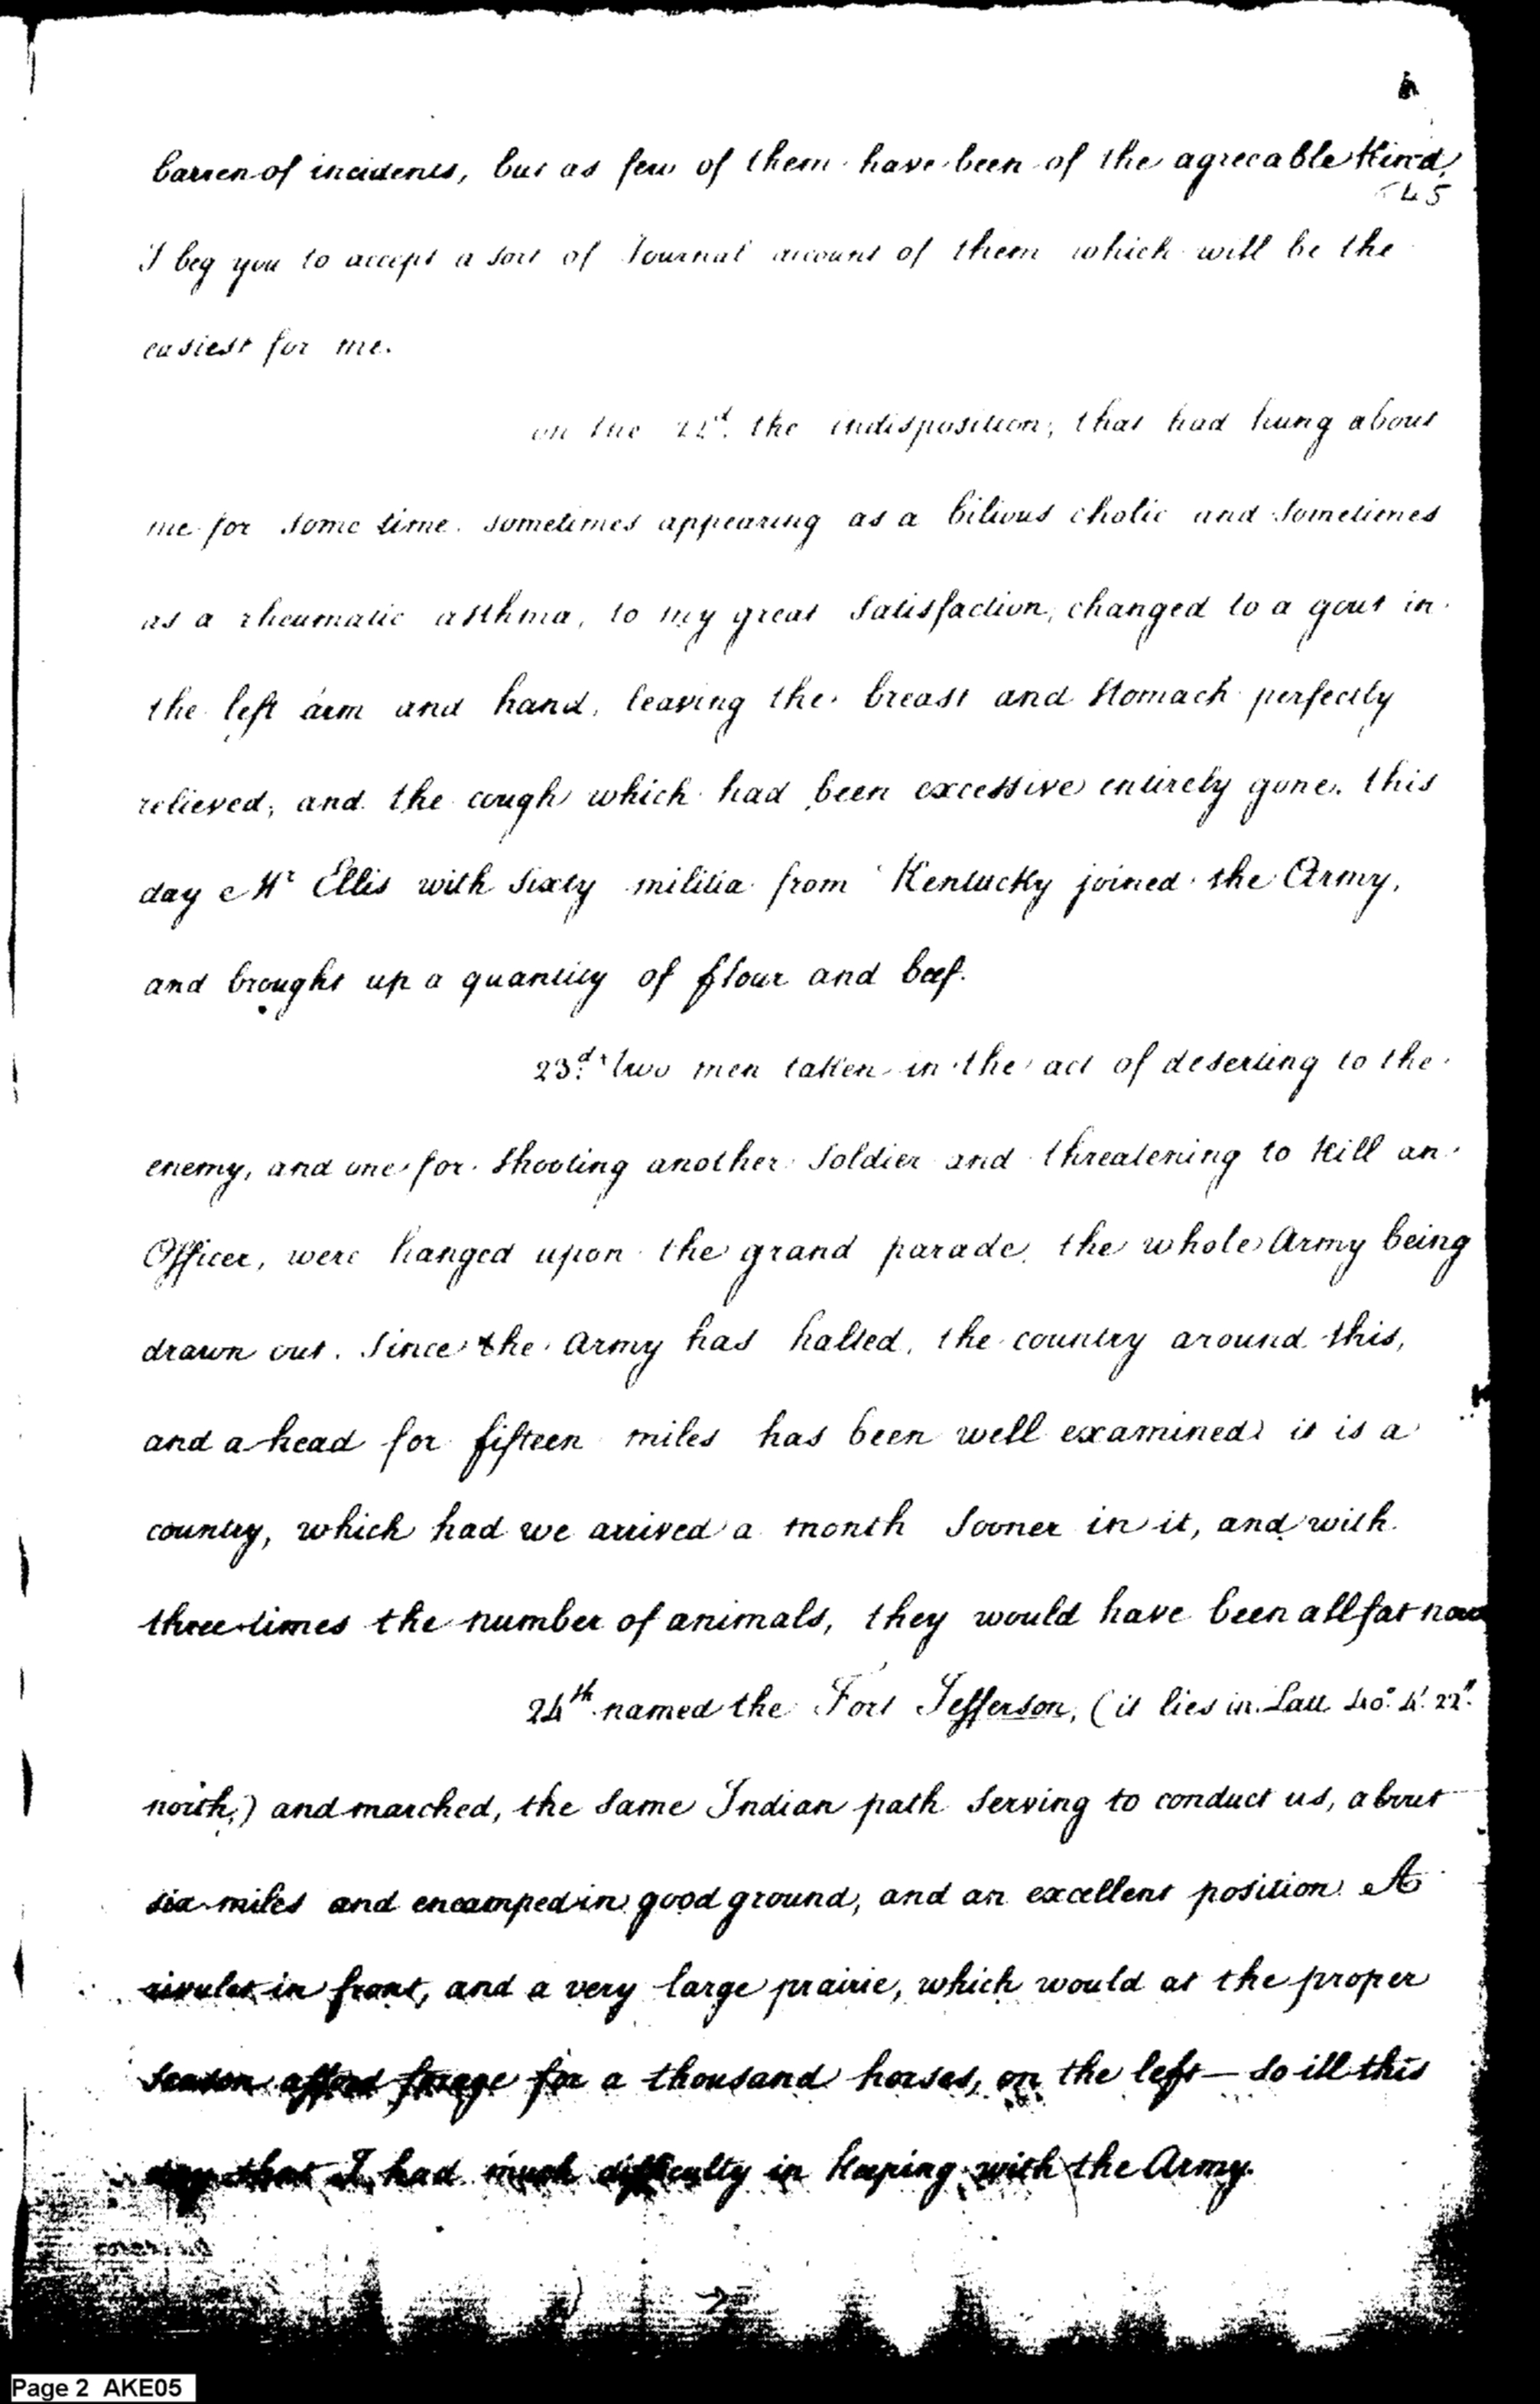 barren of incidents, but as few of them have been of the agreeable Kind,
45
I beg you to accept a sort of Journal account of them which will be the
easiest for me.
on the 22d. the indisposition, that had hung about
me for some time. sometimes appearing as a bilious cholic and sometimes
as a rheumatic asthma, to my great satisfaction, changed to a gout in
the left arm and hand, leaving the breast and stomach perfectly
relieved, and the cough which had been excessive entirely gone. this
day Mr Ellis with sixty militia from Kentucky joined the Army,
and brought up a quantity of flour and beef.
23d. two men taken in the act of deserting to the
enemy, and one for shooting another soldier and threatening to Kill an
Officer, were hanged upon the grand parade, the whole Army being
drawn out. since the Army has halted, the country around this,
and a head for fifteen miles has been well examined it is a
country, which had we arrived a month sooner in it, and with
three times the number of animals, they would have been all fat now
24th named the Fort Jefferson, (it lies in Latt 40°. 4'. 22".
north,) and marched, the same Indian path serving to conduct us, about
six miles and encamped in good ground, and an excellent position. A
rivulet in front, and a very large prairie, which would at the proper
season afford forage for a thousand horses, on the left — so ill this
day that I had much difficulty in Keeping with the Army.
Page 2 AKE05